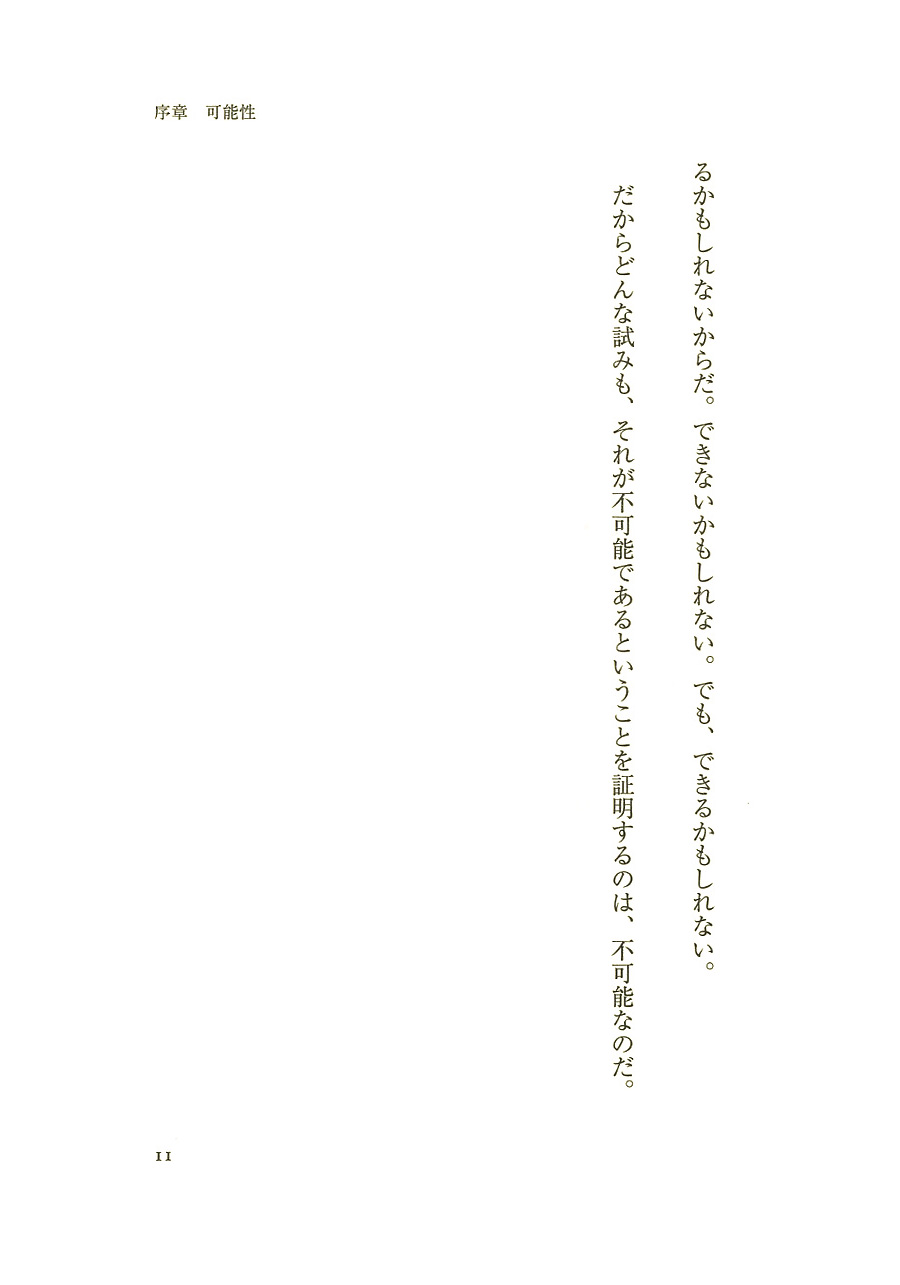 序章　可能性
るかもしれないからだ。できないかもしれない。でも、できるかもしれない。
だからどんな試みも、それが不可能であるということを証明するのは、不可能なのだ。
11